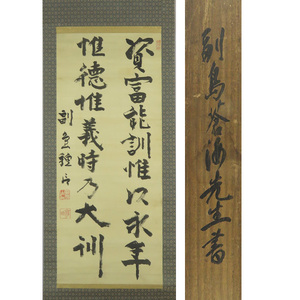 資富能訓惟以永年
惟德惟義時乃大訓
副島種臣
副島蒼海先生書